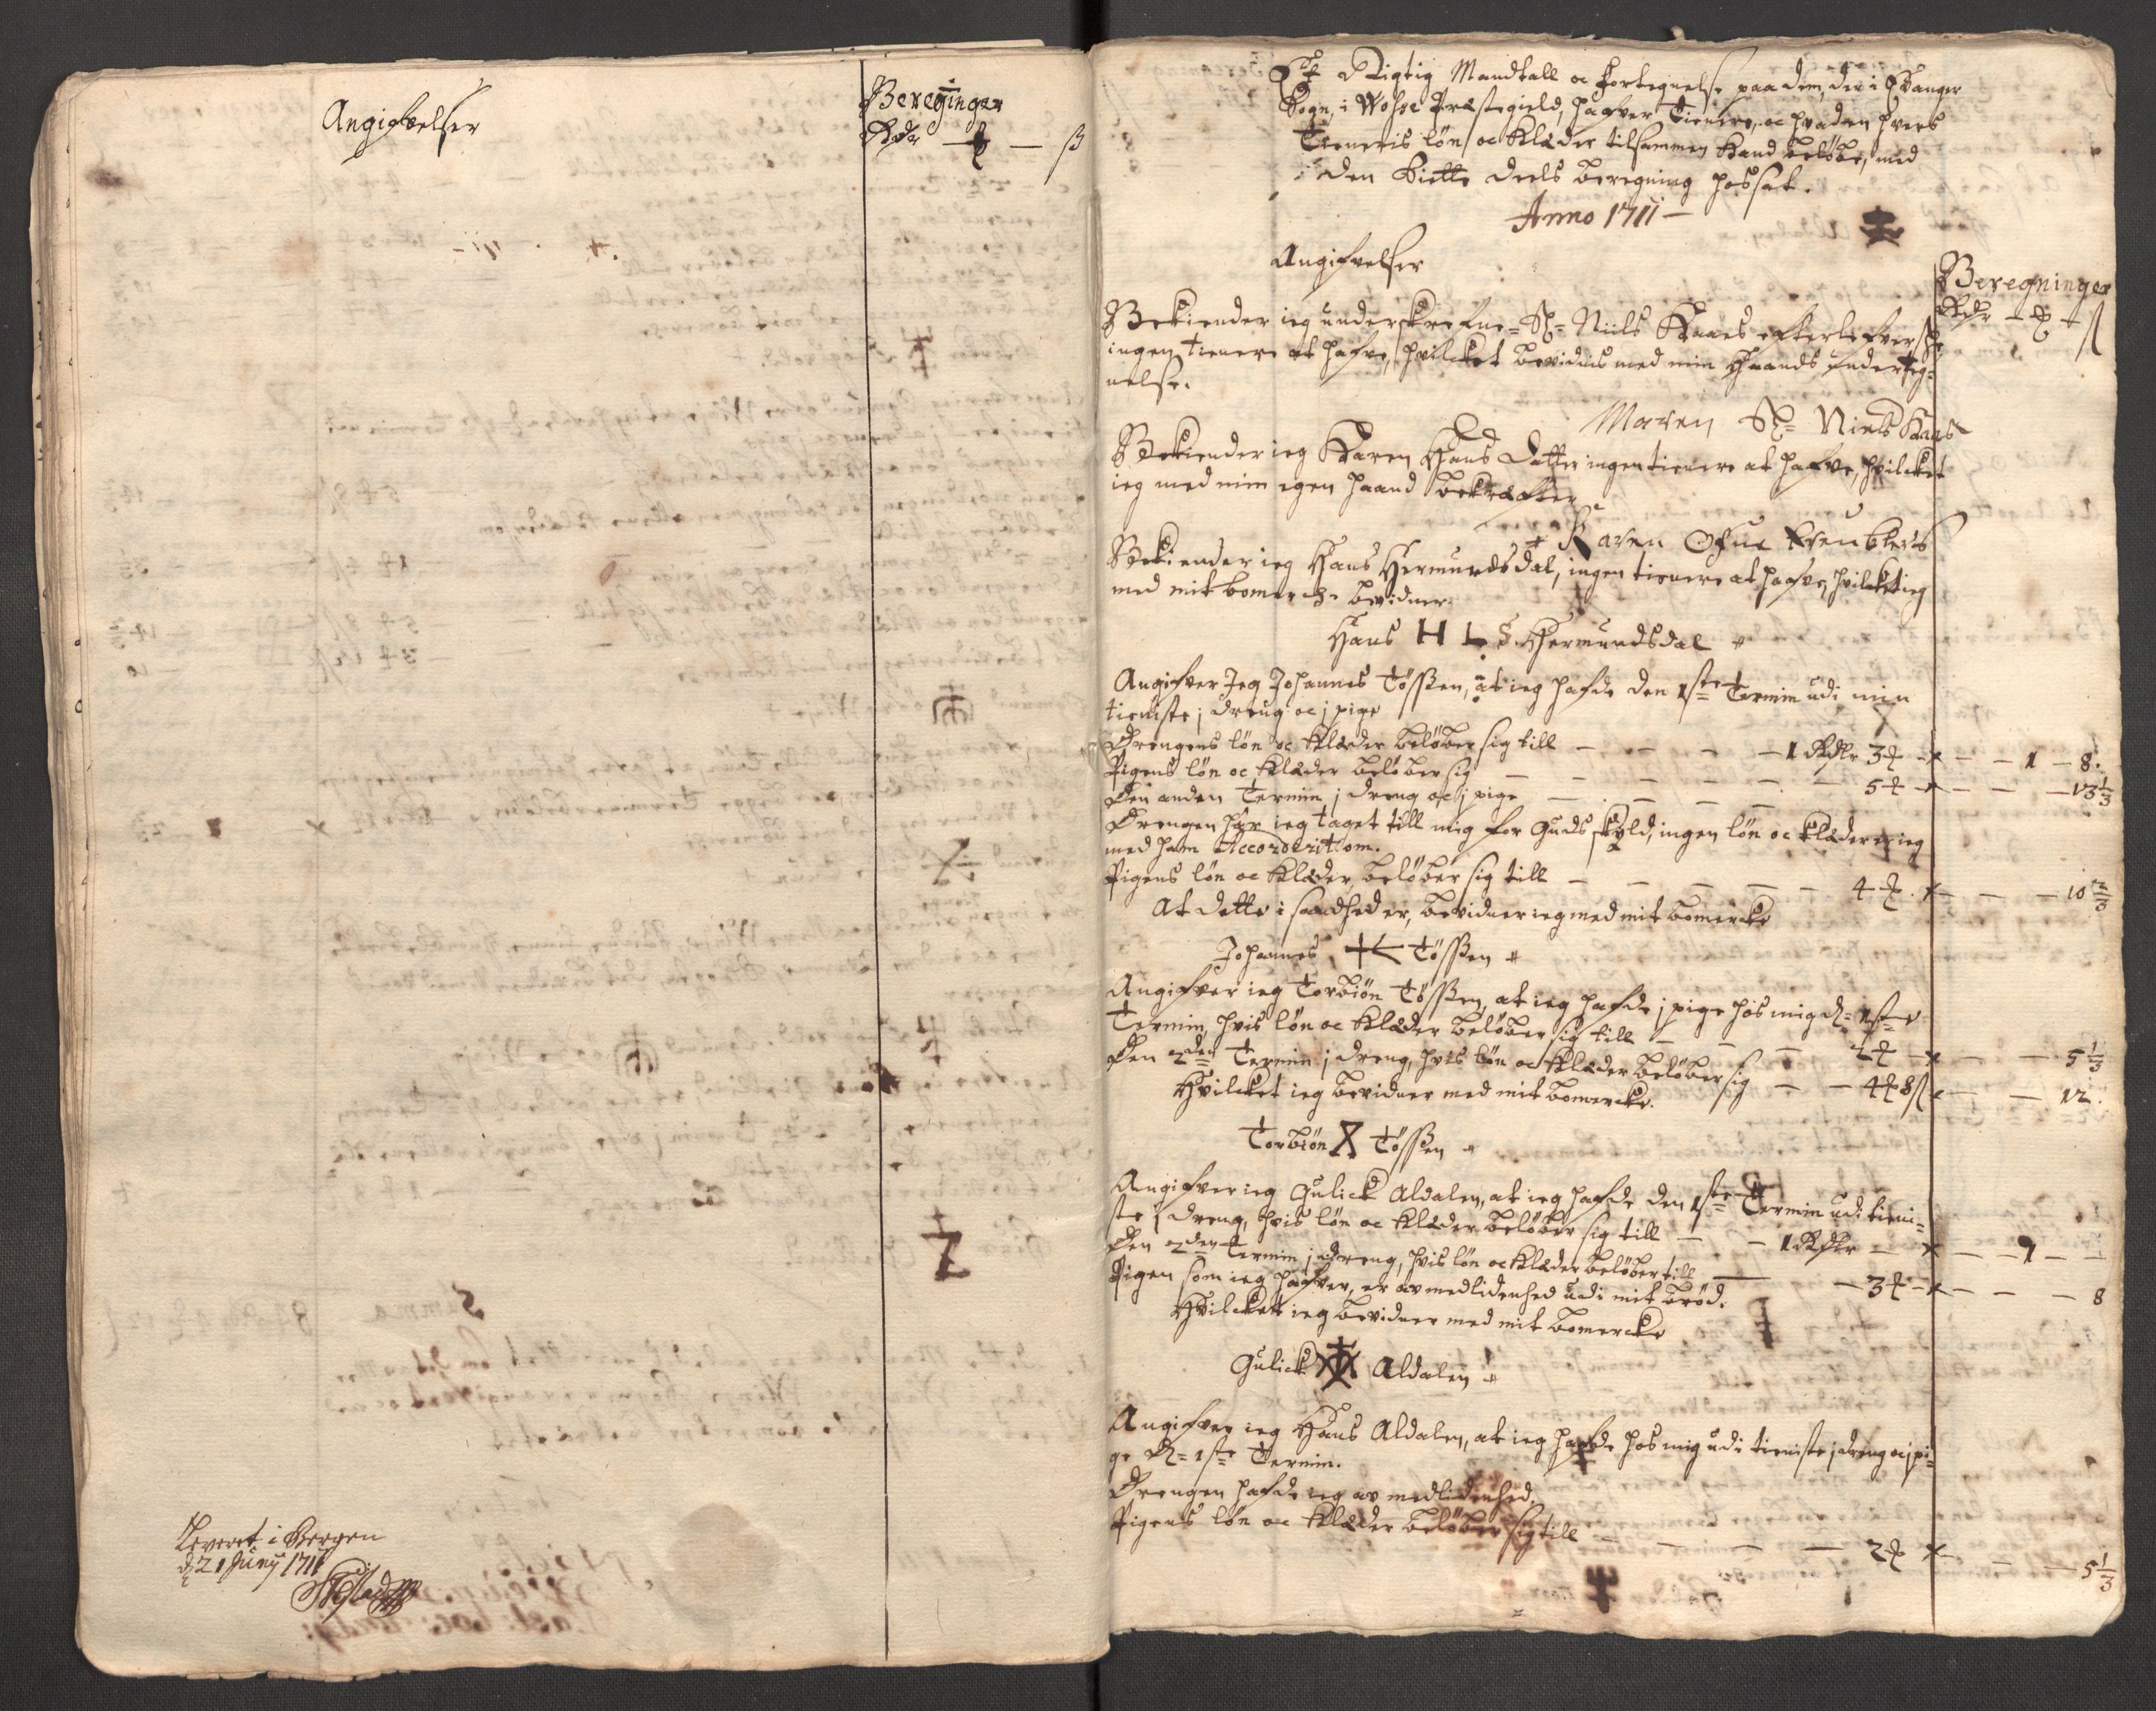 Angifvelser
Beregninger
Rdr — ß
Leveret i Bergen
d 21 Juny 1711
Et Rigtig Mandtall oc Fortegnelse paa dem, der i Evanger
Sogn, i Wosse Præstegield, hafver Tienere, oc hvadan hvers
Tieneris løn oc Klæder tilsammen Kand beløbe, med
den Siette deels beregning hossat.
Anno 1711 —
Angifvelser
Beregninger
Rdr — ß
Bekiender ieg underskrefne Sl= Niils Kaaes efterlefverske
ingen tienere at hafve, hvilcket bevidnis med min Haands underteg=
nelse.
Maren Sl= Niels Kaas
Bekiender ieg Karen Hans Datter ingen tienere at hafve, hvilcket
ieg med min egen haand bekræfter
Karen
Bekiender ieg Hans Hermundsdal, ingen tienere at hafve, hvilcket ieg
med mit bomercke bevidner.
Hans H L S Hermundsdal
Angifver Jeg Johannes Tøssen, at ieg hafde den 1ste Termin udi min
tieniste j dreng oc j pige
Drengens løn oc Klæder beløber sig till — — — — 1 Rdlr 3 — x — — 1 — 8.
Pigens løn oc Klæder beløber sig — — — — — 5 — x — — — 13 1/3
Den anden Termin j dreng oc j pige — — — —
Drengen har ieg taget till mig for Guds skyld, ingen løn oc klæder er ieg
med ham Accorderit om.
Pigens løn oc Klæder, beløber sig till — — — — — 4 . x — — — 10 2/3
At dette i sandhed er, bevidner ieg med mit bomercke
Johannes Tøssen
Angifver ieg Torbiøn Tøssen, at ieg hafde j pige hos mig d= 1ste
Termin, hvis løn oc Klæder beløber sig till — — — 2 — x — — 5 1/3
Den 2den Termin j dreng, hvis løn oc Klæder beløber sig — — 4 8 ß — — 12.
Hvilcket ieg bevidner med mit bomercke.
Torbiøn X Tøssen
Angifver ieg Gulick Aldalen, at ieg hafde den 1ste Termin udi tieni=
ste j dreng, hvis løn oc Klæder beløber sig till — — 1 Rdlr — x — — 1 — —
Den 2den Termin j dreng, hvis løn oc Klæder beløber till — — 3 — x — — — 8
Pigen som ieg hafver, er av medlidenhed udi mit brød.
Hvilcket ieg bevidner med mit bomercke
Gulick Aldalen
Angifver ieg Hans Aldalen, at ieg hafde hos mig udi tieniste j dreng oc j pi=
ge d= 1ste Termin.
Drengen hafde ieg av medlidenhed.
Pigens løn oc Klæder beløber sig till — — — — 2 x — — — 5 1/3